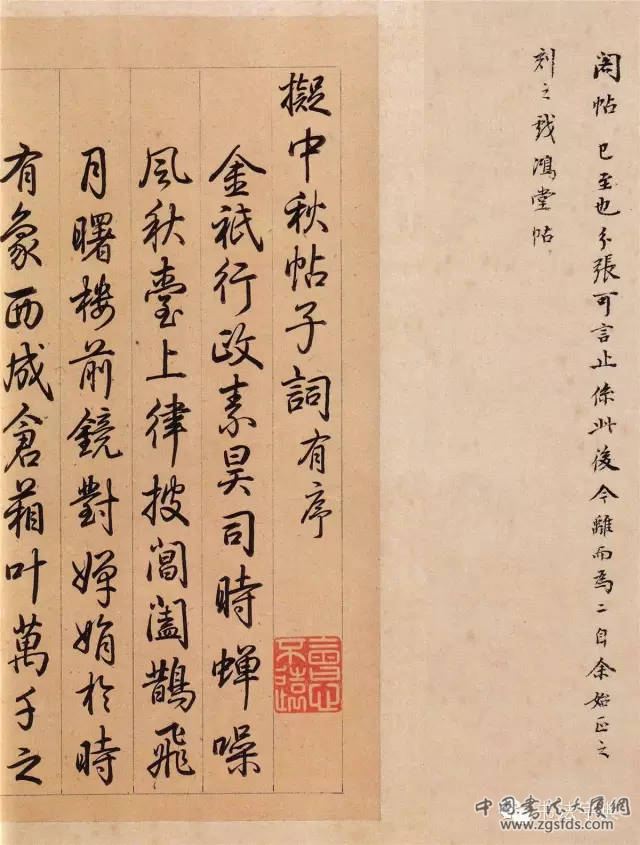 閣帖已至也分張可言止係此後今離而為二自余始正之
刻之戲鴻堂帖
擬中秋帖子詞有序
金祇行政素昊司時蟬噪
風秋臺上律披閶闔鵲飛
月曙樓前鏡對嬋娟於時
有象西成倉葙叶萬千之
中國书法大厦網
www.zgsfds.com